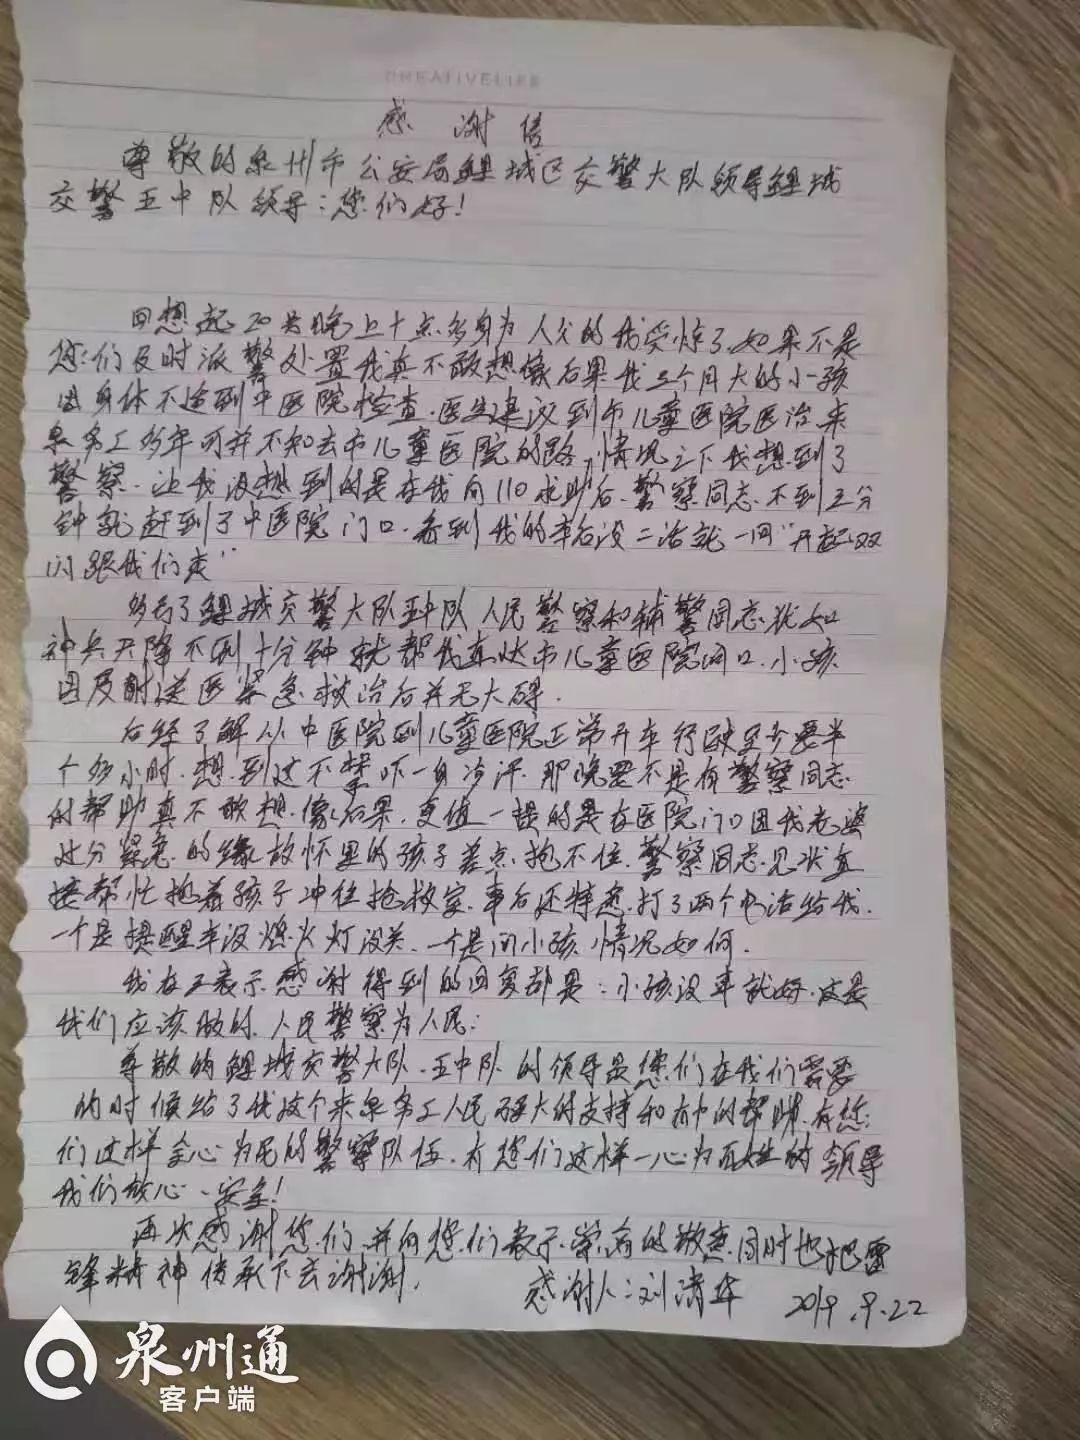 CREATIVELIFE
感谢信
尊敬的泉州市公安局鲤城区交警大队领导鲤城
交警五中队领导:您们好!
回想起20号晚上十点多身为人父的我受惊了.如果不是
您们及时派警处置我真不敢想像后果.我三个月大的小孩
因身体不适到中医院检查.医生建议到市儿童医院医治.来
泉务工多年可并不知去市儿童医院的路,情况之下我想到了
警察.让我没想到的是在我向110求助后.警察同志不到五分
钟就赶到了中医院门口.看到我的车后没二话就一问"开起双
闪跟我们走"
多亏了鲤城交警大队五中队人民警察和辅警同志犹如
神兵天降不到十分钟就帮我直达市儿童医院门口.小孩
因及时送医紧急救治后并无大碍.
后经了解从中医院到儿童医院正常开车行驶至少要半
个多小时.想到这不禁吓一身冷汗.那晚要不是有警察同志
的帮助真不敢想像后果.更值一提的是在医院门口因我老婆
过分紧急的缘故怀里的孩子差点抱不住.警察同志见状直
接帮忙抱着孩子冲往抢救室.事后还特意打了两个电话给我.
一个是提醒车没熄火灯没关.一个是问小孩情况如何.
我在表示感谢得到的回复却是:小孩没事就好.这是
我们应该做的.人民警察为人民;
尊敬的鲤城交警大队.五中队的领导是您们在我们需要
的时候给了我这个来泉务工人民强大的支持和有力的帮助.有您
们这样全心为民的警察队伍.有您们这样一心为百姓的领导
我们放心、安全!
再次感谢您们.并向您们表示崇高的敬意.同时也把雷
锋精神传承下去谢谢.
感谢人:刘清华 2019.9.22
泉州通
客户端